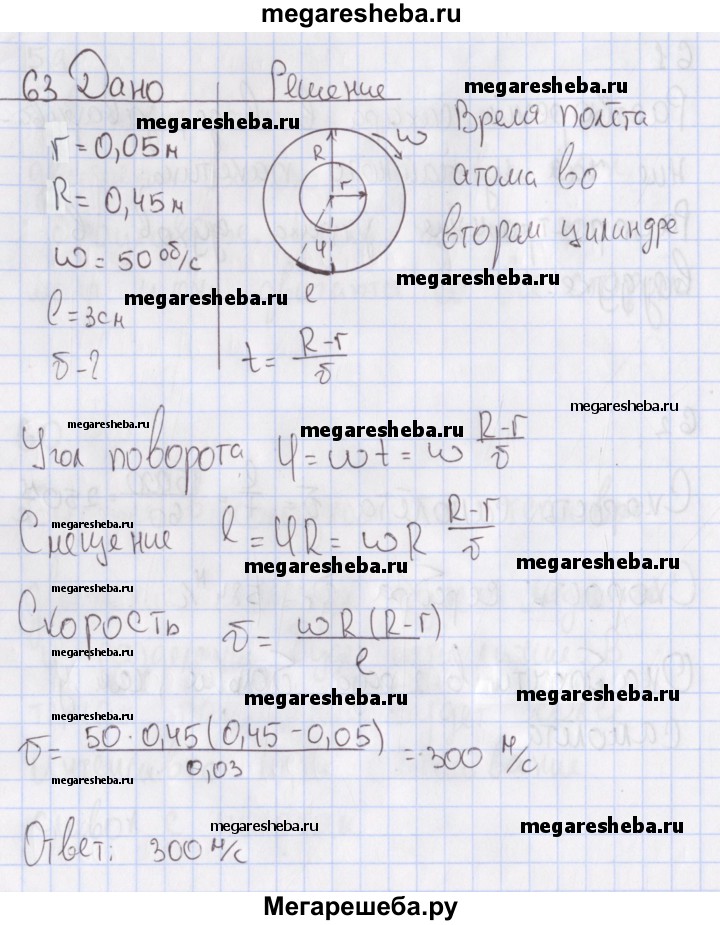 megaresheba.ru
63 Дано Решение
megaresheba.ru
megaresheba.ru
r = 0,05 м
R = 0,45 м
ω = 50 об/с
l = 3 см
υ - ?
R
r
ω
φ
l
Время полёта
атома во
втором цилиндре
megaresheba.ru
megaresheba.ru
t = (R-r)/υ
megaresheba.ru
megaresheba.ru
megaresheba.ru
Угол поворота φ = ωt = ω (R-r)/υ
megaresheba.ru
Смещение l = φR = ωR (R-r)/υ
megaresheba.ru
megaresheba.ru
megaresheba.ru
Скорость υ = ωR(R-r)/l
megaresheba.ru
megaresheba.ru
megaresheba.ru
megaresheba.ru
υ = 50·0,45(0,45-0,05)/0,03 = 300 м/с
megaresheba.ru
megaresheba.ru
Ответ: 300 м/с
Мегарешеба.ру